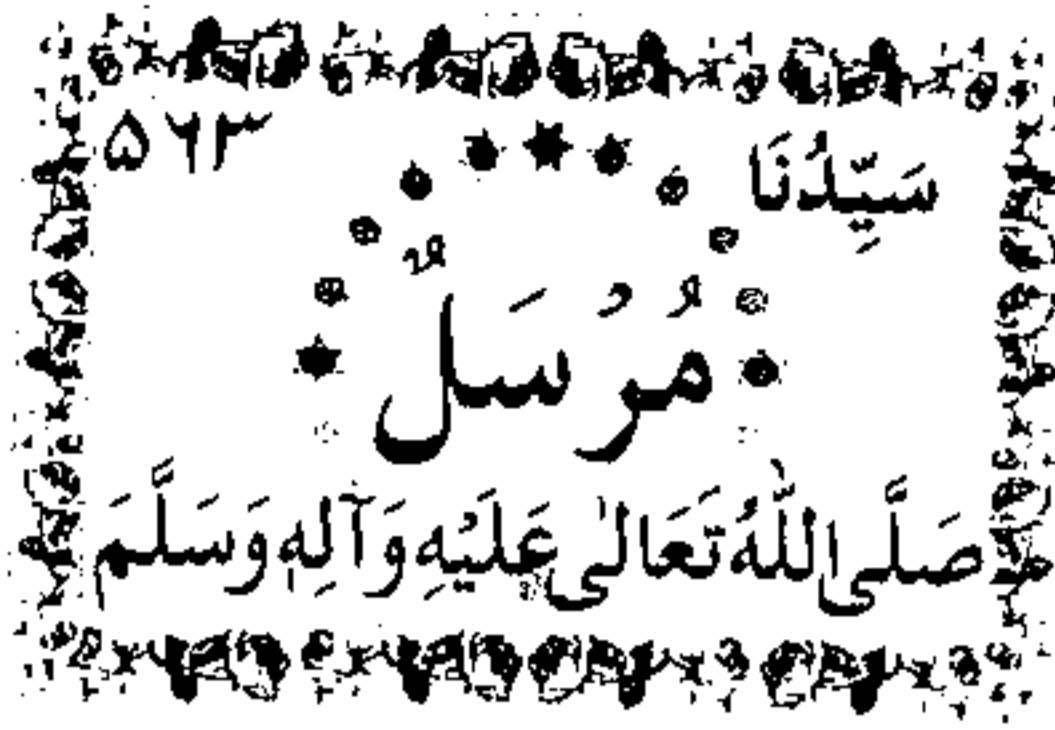 سَيِّدُنَا ۵۶۳
مُرْسَلٌ
صَلَّى اللّٰهُ تَعَالىٰ عَلَيْهِ وَآلِهٖ وَسَلَّمَ